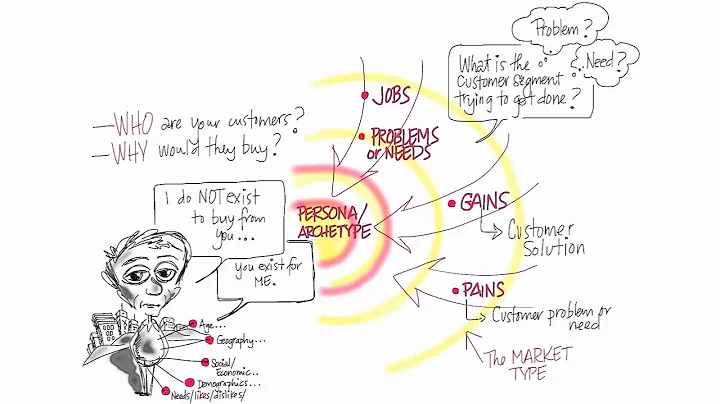 Problem?
Need?
What is the
Customer Segment
trying to get done?
JOBS
PROBLEMS
or NEEDS
—WHO are your customers?
—WHY would they buy?
I do NOT exist
to buy from
you...
you exist for
ME.
PERSONA/
ARCHETYPE
GAINS
Customer
Solution
PAINS
Customer problem or
need
The MARKET
TYPE
Age...
Geography...
Social/
Economic...
Demographics...
Needs/likes/dislikes/